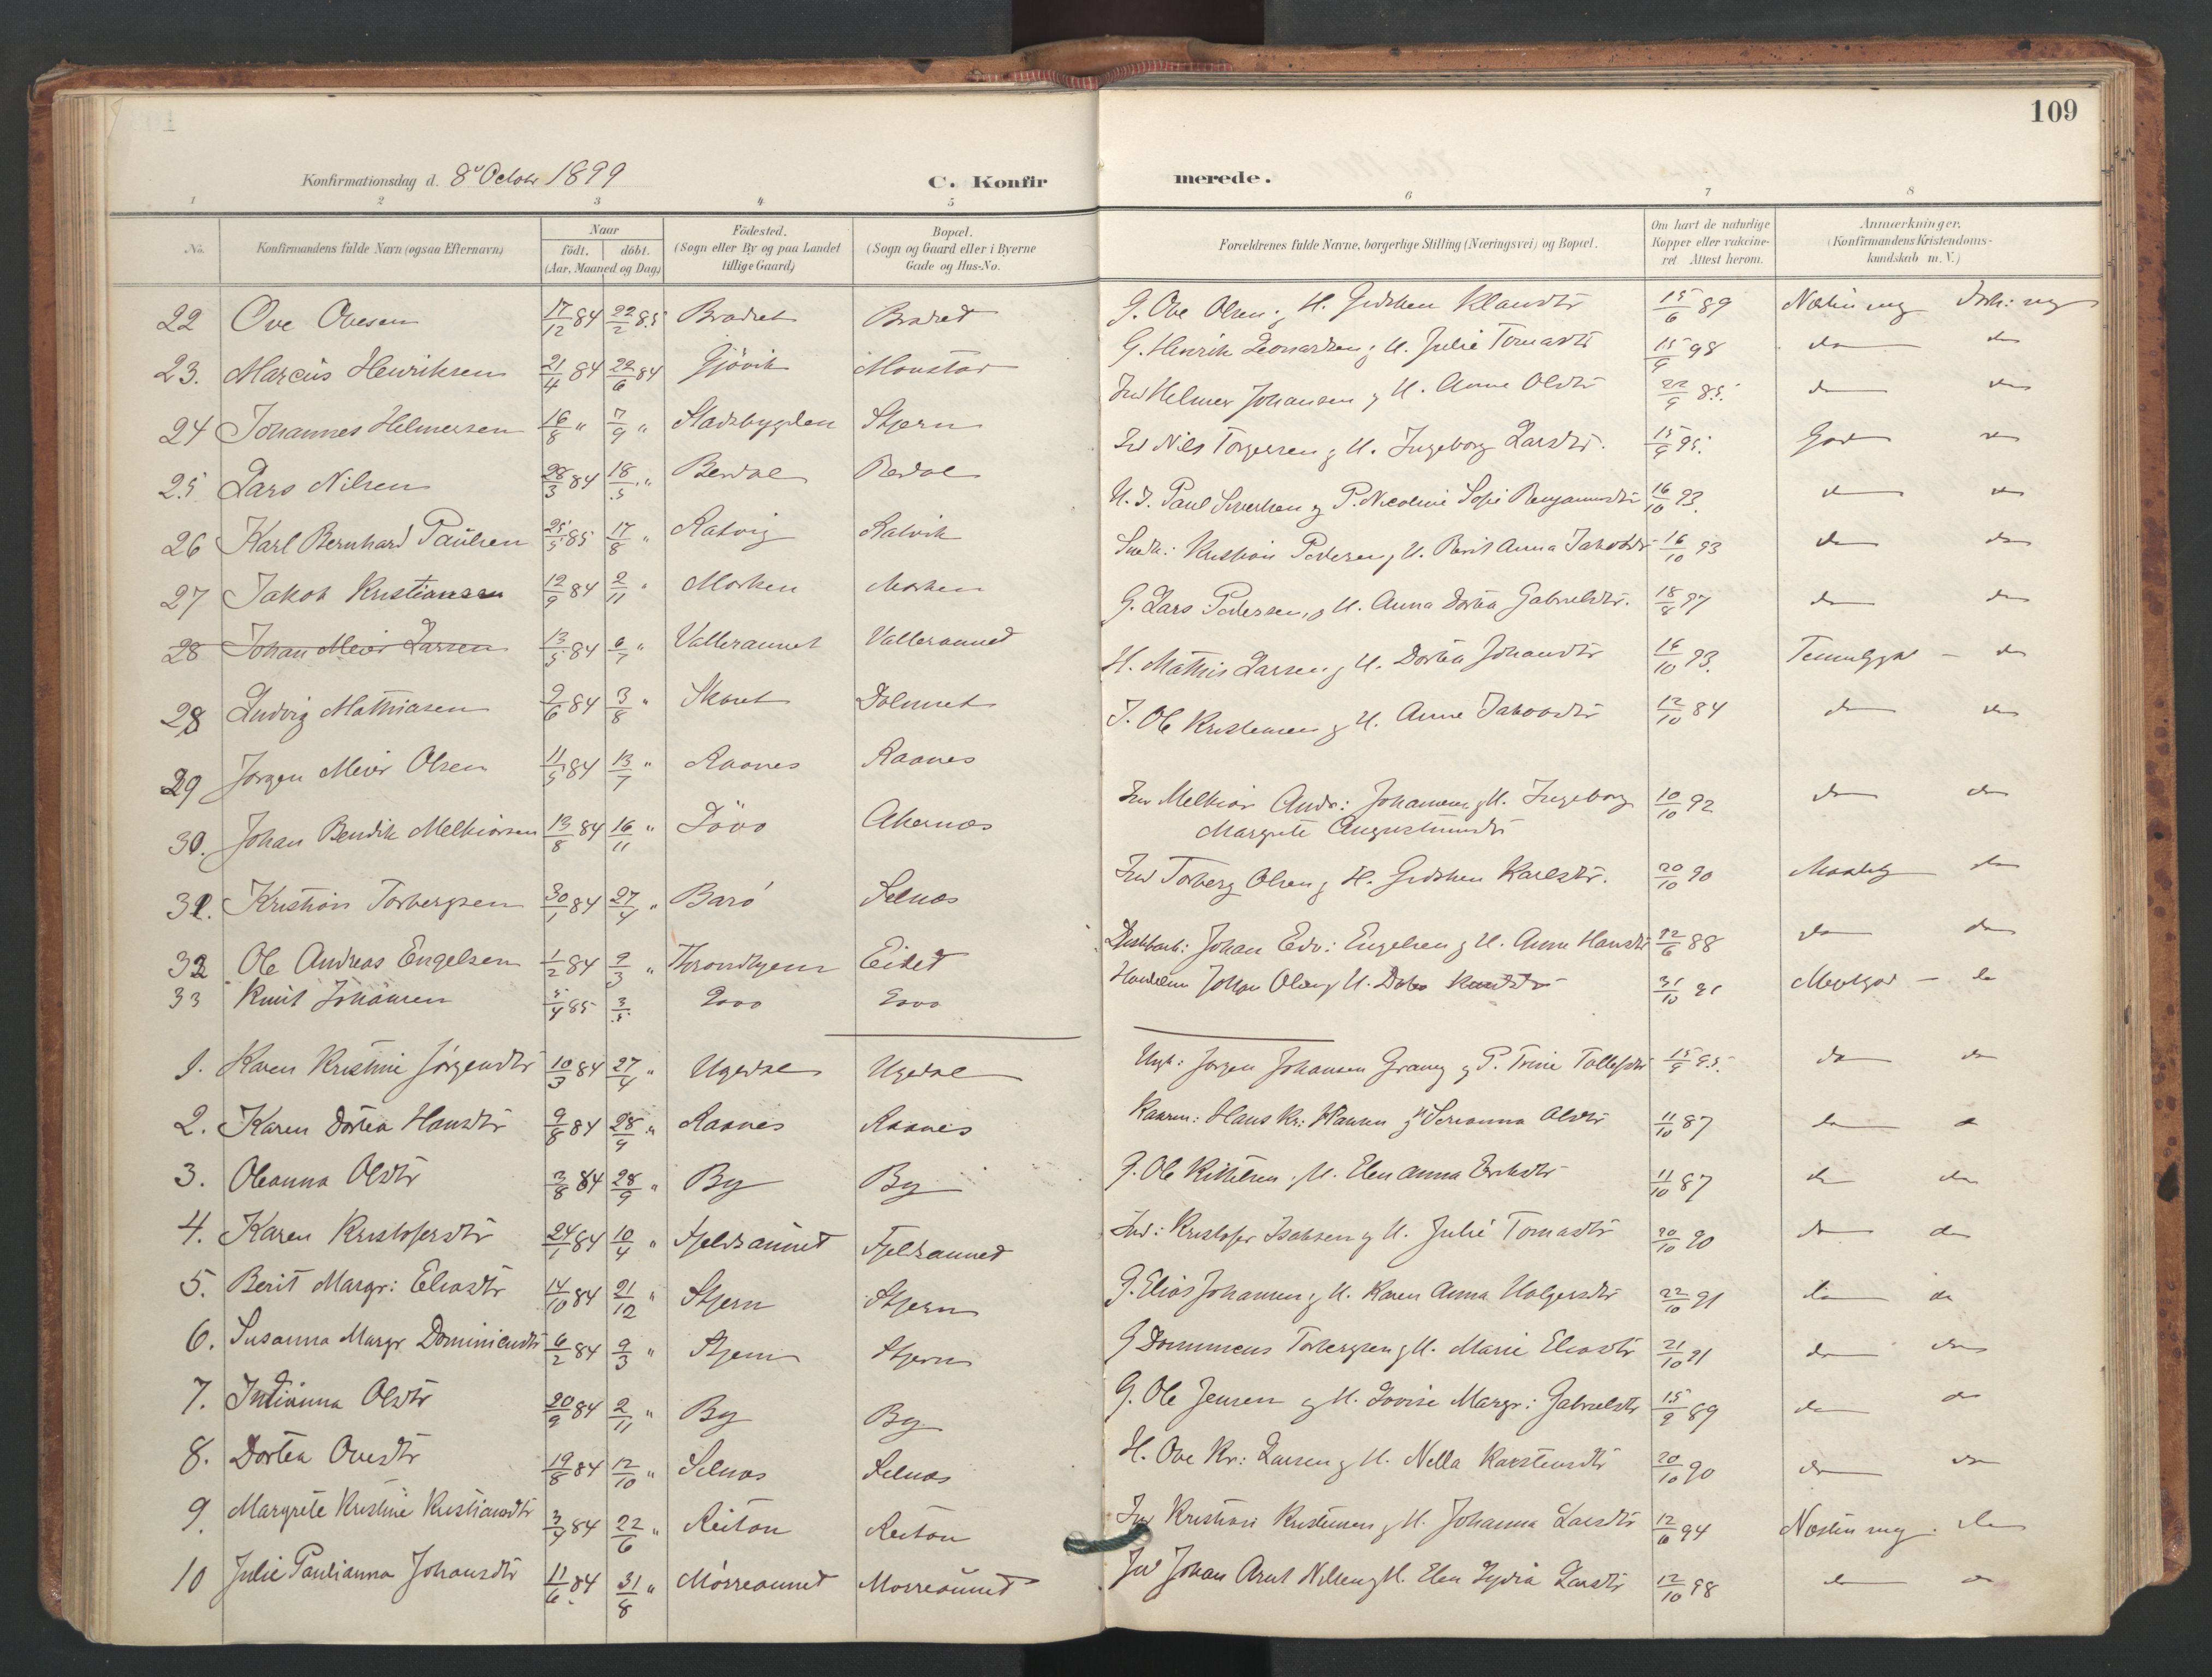 109
Konfirmationsdag d. 8de Octobr 1899
C. Konfirmerede.
1 2 3 4 5 6 7 8
No.
Konfirmandens fulde Navn (ogsaa Efternavn)
Naar
födt. döbt.
(Aar, Maaned og Dag)
Födested.
(Sogn eller By og paa Landet
tillige Gaard)
Bopæl.
(Sogn og Gaard eller i Byerne
Gade og Hus-No.
Forældrenes fulde Navne, borgerlige Stilling (Næringsvei) og Bopæl.
Om havt de naturlige
Kopper eller vakcine-
ret Attest herom.
Anmærkninger,
(Konfirmandens Kristendoms-
kundskab m. V.)
22 Ove Ovesen 17/12 84 22/2 85 Bradret Bradret G. Ove Olsen og H. Gursten 15/6 89
23. Marcus Henriksen 21/4 84 22/6 84 Gjövik Monstad G. Henrik Leonardsen og H. Julie Tomasdtr 15/9 98 do do
24 Johannes Helmersen 16/8 " 7/9 " Stadsbygden Stjern Ind Helmer Johansen og H. Anne Olsdtr 22/9 85. do do
25 Lars Nilsen 28/3 84 18/5 " Berdal Berdal Ind Nils Torgersen og H. Ingeborg Larsdtr. 15/9 95. God do
26 Karl Bernhard Paulsen 25/5 85 17/8 " Ratvig Ratvik U. J. Paul Sivertsen og P. Nicoline Sofie Benjaminsdtr 16/10 93. do do
27 Jakob Kristiansen 12/9 84 2/11 " Morken Morken Snedk: Kristian Pedersen og H. Berit Anna Jakobsdtr 16/10 93 do do
28 Johan Meier Larsen 13/5 84 6/7 " Valleraunet Valleraunet G. Lars Pedersen og H. Anna Dortea Gabrielsdtr. 18/8 97 do do
28 Ludvig Mathiasen 2/6 84 3/8 " Skaret Dolmset H. Mathis Larsen og H. Dortea Johansdtr 16/10 93. Temmelig god - do
29 Jorgen Meier Olsen 11/5 84 13/7 " Raanes Raanes J. Ole Kristensen og H. Anne Jakobsdtr 12/10 84 do do
30. Johan Bendik Melkiorsen 13/8 84 16/11 " Döso Akernæs Ind Melkior Andr: Johansen og H. Ingeborg
Margrete Augustinusdtr 10/10 92 do do
31. Kristian Torbergsen 30/1 84 27/4 " Barö Selnæs Ind Torberg Olsen og H. Gurstin Karlsdtr. 20/10 90 Maadelig do
32 Ole Andreas Engelsen 1/2 84 9/3 " Throndhjem Eidet Johan Edv: Engelsen og H. Anne Hansdtr 12/6 88 do do
33 Knut Johansen 5/4 85 3/5 Johan Olsen og H. 31/10 91 do
1. Karen Kristine Jörgensdtr 10/3 84 27/4 " Ugedal Ugedal Ungk: Jorgen Johansen Graneng og P. Trine Tollefsdtr 15/9 95. do do
2. Karen Dortea Hansdtr 9/8 84 28/9 " Raanes Raanes Hans Kr: Hansen og H. Serianna Olsdtr 11/10 87 do do
3. Oleanna Olsdtr 3/8 84 28/9 " By By G. Ole Kittilsen og H. Elen Anna Eriksdtr 11/10 87 do do
4. Karen Kristofersdtr 24/1 84 10/4 " Fjeldsaunet Fjeldsaunet Ind: Kristofer Isaksen og H. Julie Tomasdtr 20/10 90 do do
5. Berit Margr: Eliasdtr 14/10 84 21/12 " Stjern Stjern G. Elias Johansen og H. Karen Anna Holgersdtr 22/10 91 do do
6. Susanna Margr Dominicusdtr 6/2 84 9/3 " Stjern Stjern G Dominicus Torbergsen og H. Marie Eliasdtr 21/10 91 do do
7. Indianna Olsdtr 20/9 84 2/11 " By By G. Ole Jensen og H. Lovise Margr: Gabrielsdtr 15/9 89 do do
8. Dortea Ovesdtr 19/8 84 12/10 " Selnæs Selnæs H. Ove Kr: Larsen og H. Nella Karstensdtr 20/10 90 do do
9. Margrete Kristine Kristiansdtr 3/4 84 22/6 " Reitan Reitan Ind Kristian Kristensen og H. Johanna Larsdtr 12/6 94 Næsten mg. do
10 Julie Paulianna Johansdtr 11/6 84 31/8 " Mörreaunet Morreaunet Ind Johan Arnt Nilsen og H. Elen Lydia Larsdtr 12/10 98 do do